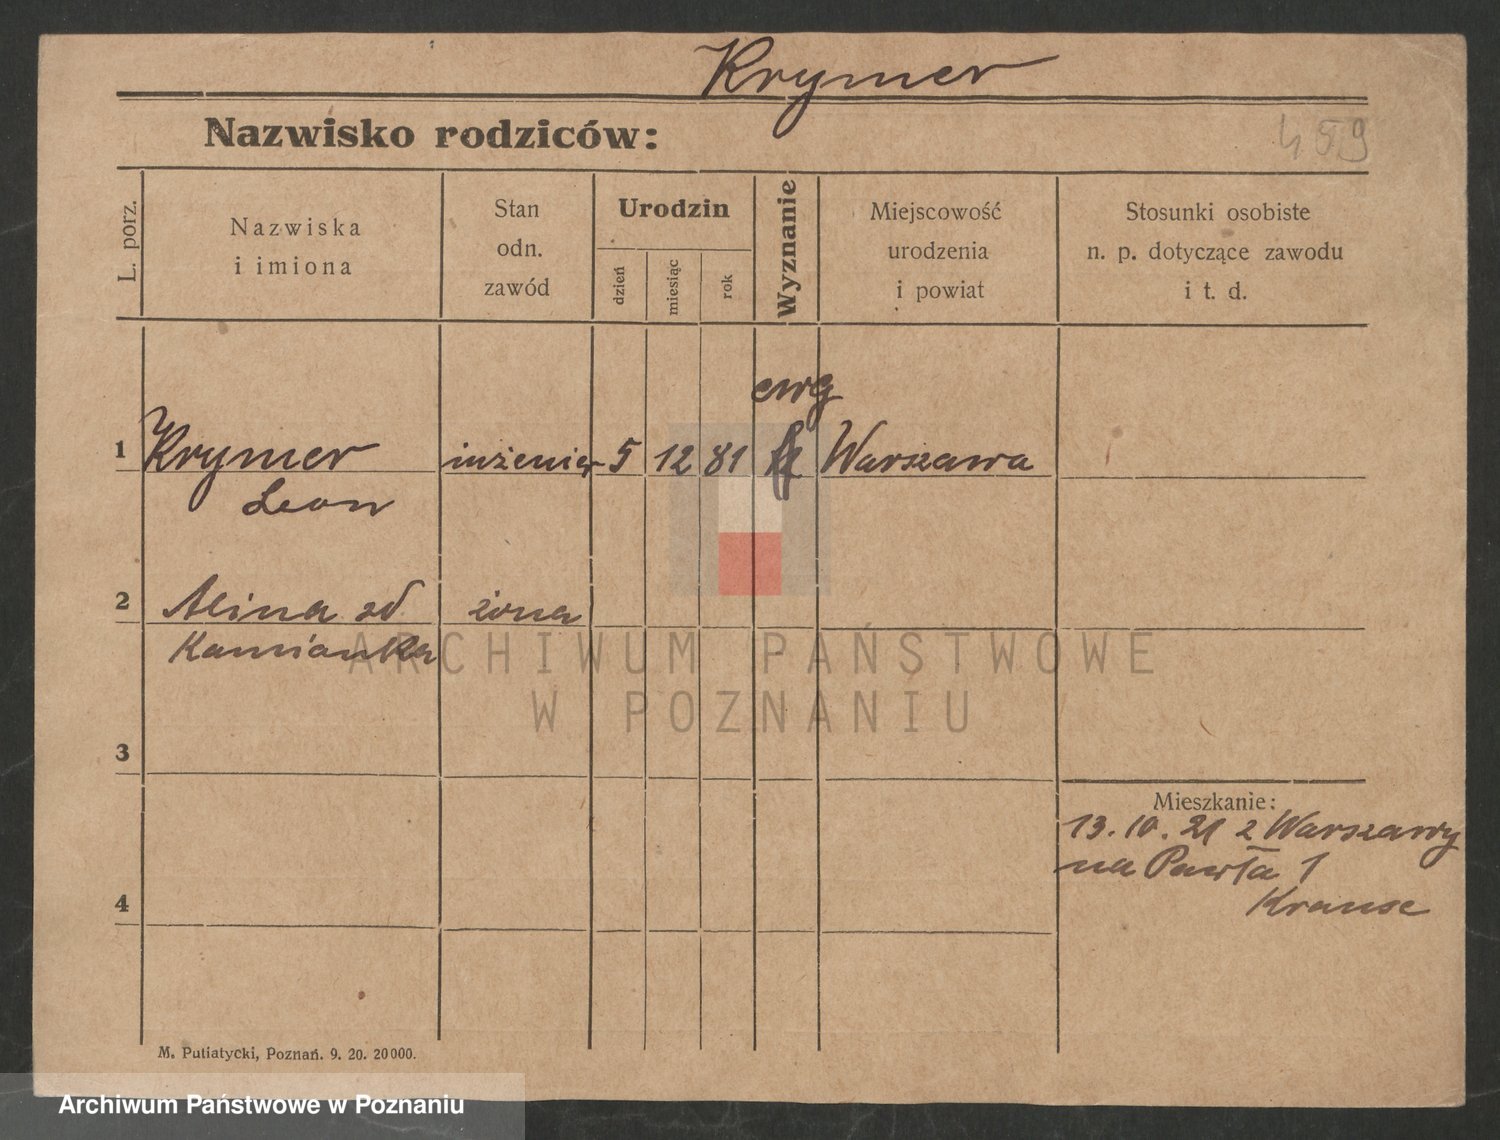 Krymer
Nazwisko rodziców:
459
L. porz.
Nazwiska
i imiona
Stan
odn.
zawód
Urodzin
dzień
miesiąc
rok
Wyznanie
Miejscowość
urodzenia
i powiat
Stosunki osobiste
n. p. dotyczące zawodu
i t. d.
ewg
1 Krymer inżenier 5 12 81 Warszawa
Leon
2 Alina zd żona
Kamianka
ARCHIWUM PAŃSTWOWE
W POZNANIU
3
Mieszkanie:
13. 10. 21 z Warszawy
na Pawła 1
Krause
4
M. Putiatycki, Poznań. 9. 20. 20000.
Archiwum Państwowe w Poznaniu